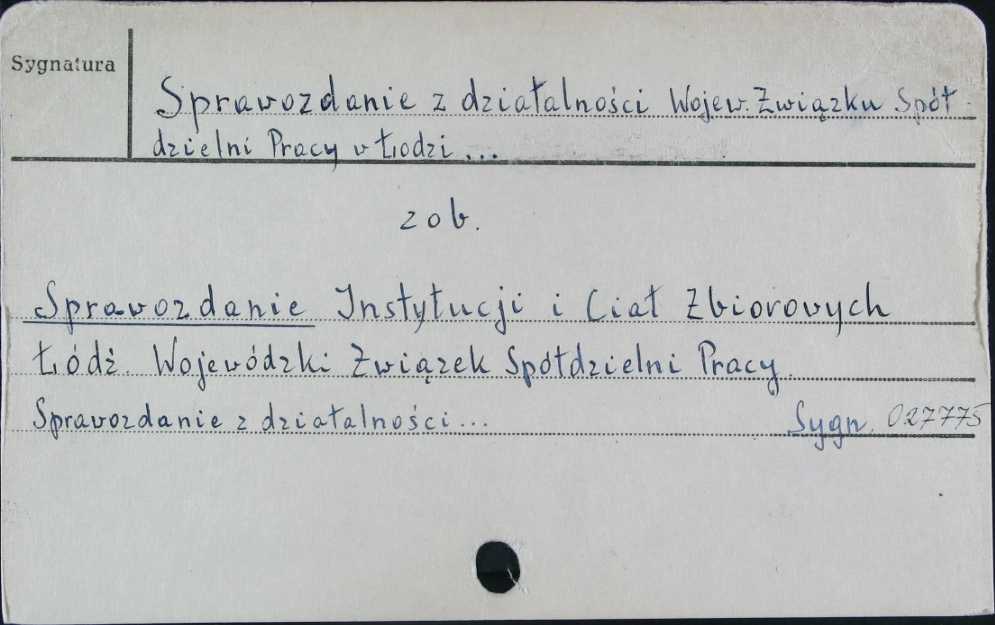 Sygnatura
Sprawozdanie z działalności Wojew. Związku Spół-
dzielni Pracy w Łodzi ...
zob.
Sprawozdanie Instytucji i Ciał Zbiorowych
Łódź. Wojewódzki Związek Spółdzielni Pracy.
Sprawozdanie z działalności ... Sygn. 027775